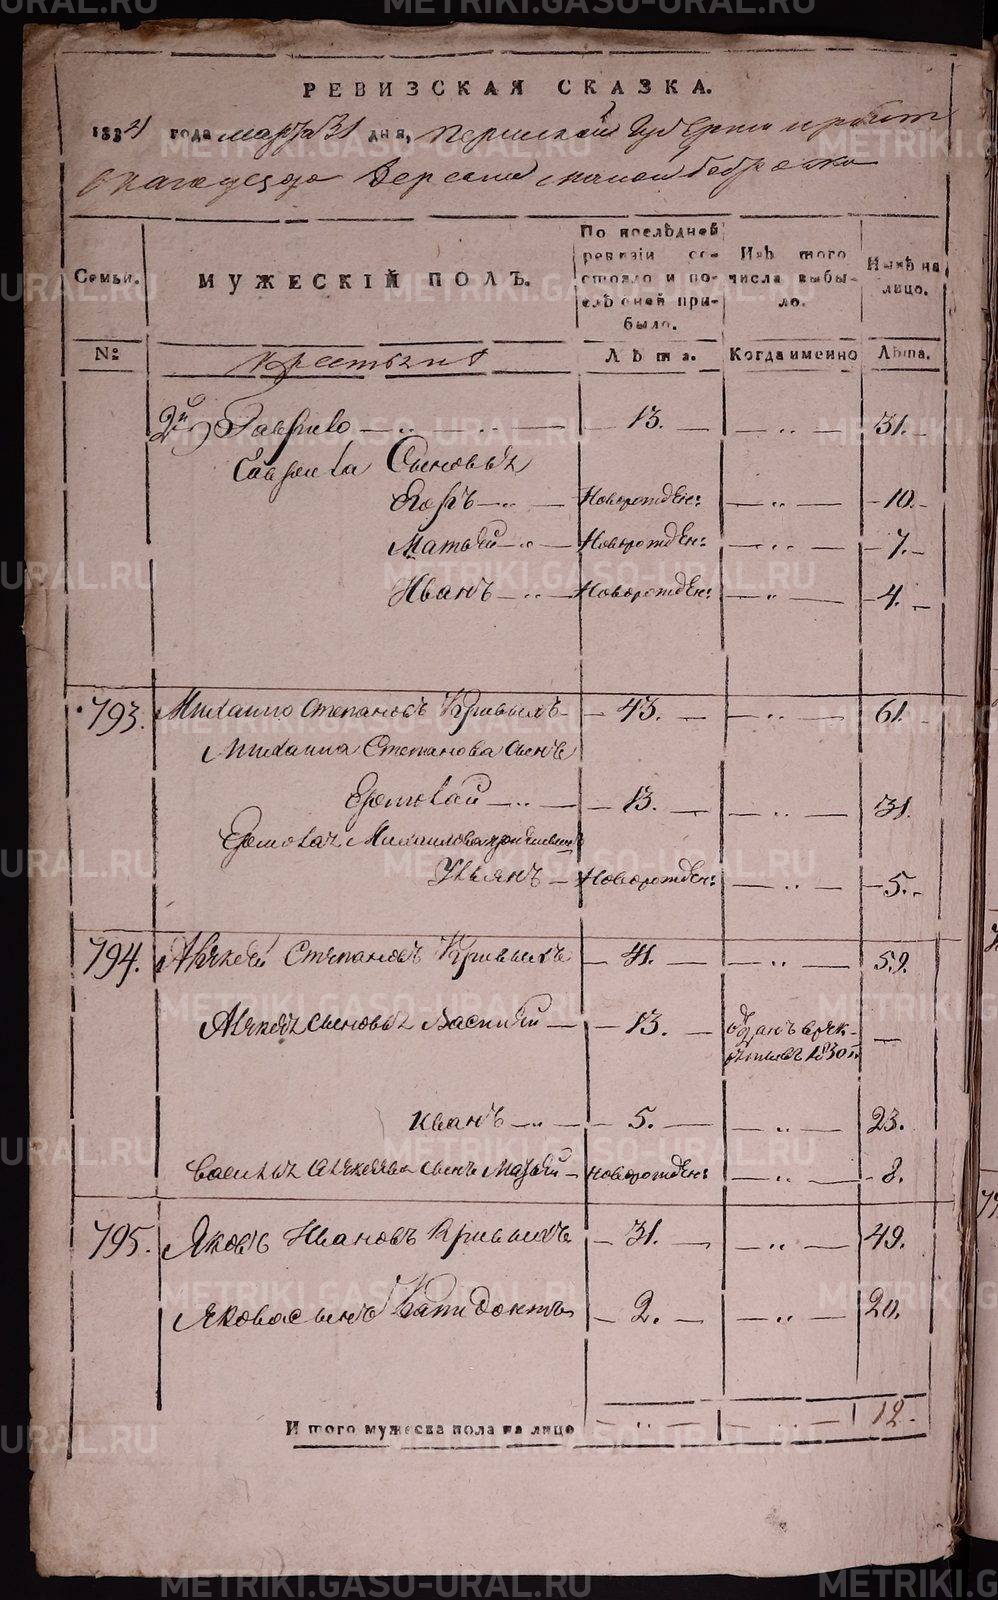 РЕВИЗСКАЯ СКАЗКА.
1834 года марта 31 дня, Пермской Губернии Ирбит
скаго уезда Деревни Бобровки
Семьи. МУЖЕСКІЙ ПОЛЪ. По послѣдней ревизіи состояло и послѣ оней прибыло. Изъ того числа выбыло. Нынѣ на лицо.
№ Крестьяне Лѣта. Когда именно Лѣта.
2й Гаврило 13. 31.
Гаврила Сыновья
Егоръ Новорожден: 10.
Матвей Новорожден: 7.
Иванъ Новорожден: 4.
793. Михаило Степановъ Кривыхъ 43. 61.
Михаила Степанова сынъ
Ермолай 13. 31.
Ермолая Михаилова сынъ
Ульянъ Новорожден: 5.
794. Алексей Степановъ Кривыхъ 41. 59.
Алексея сыновья Василий 13. отданъ в рек-
руты въ 1830 г.
Иванъ 5. 23.
Василья Алексеева сынъ Матвей Новорожден: 8.
795. Яковъ Ивановъ Кривыхъ 31. 49.
Якова сынъ Калидонтъ 2. 20.
Итого мужеска пола на лице 12.
METRIKI.GASO-URAL.RU